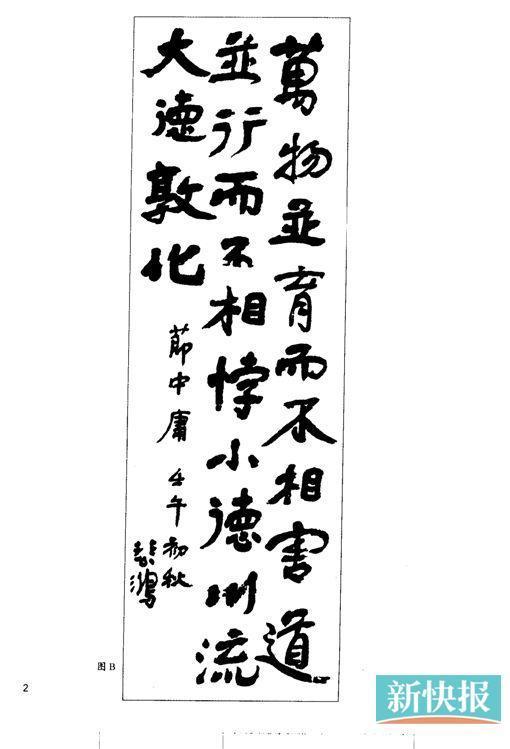 萬物並育而不相害道
並行而不相悖小德川流
大德敦化
節中庸 壬午初秋
悲鴻
图 B
2
新快报